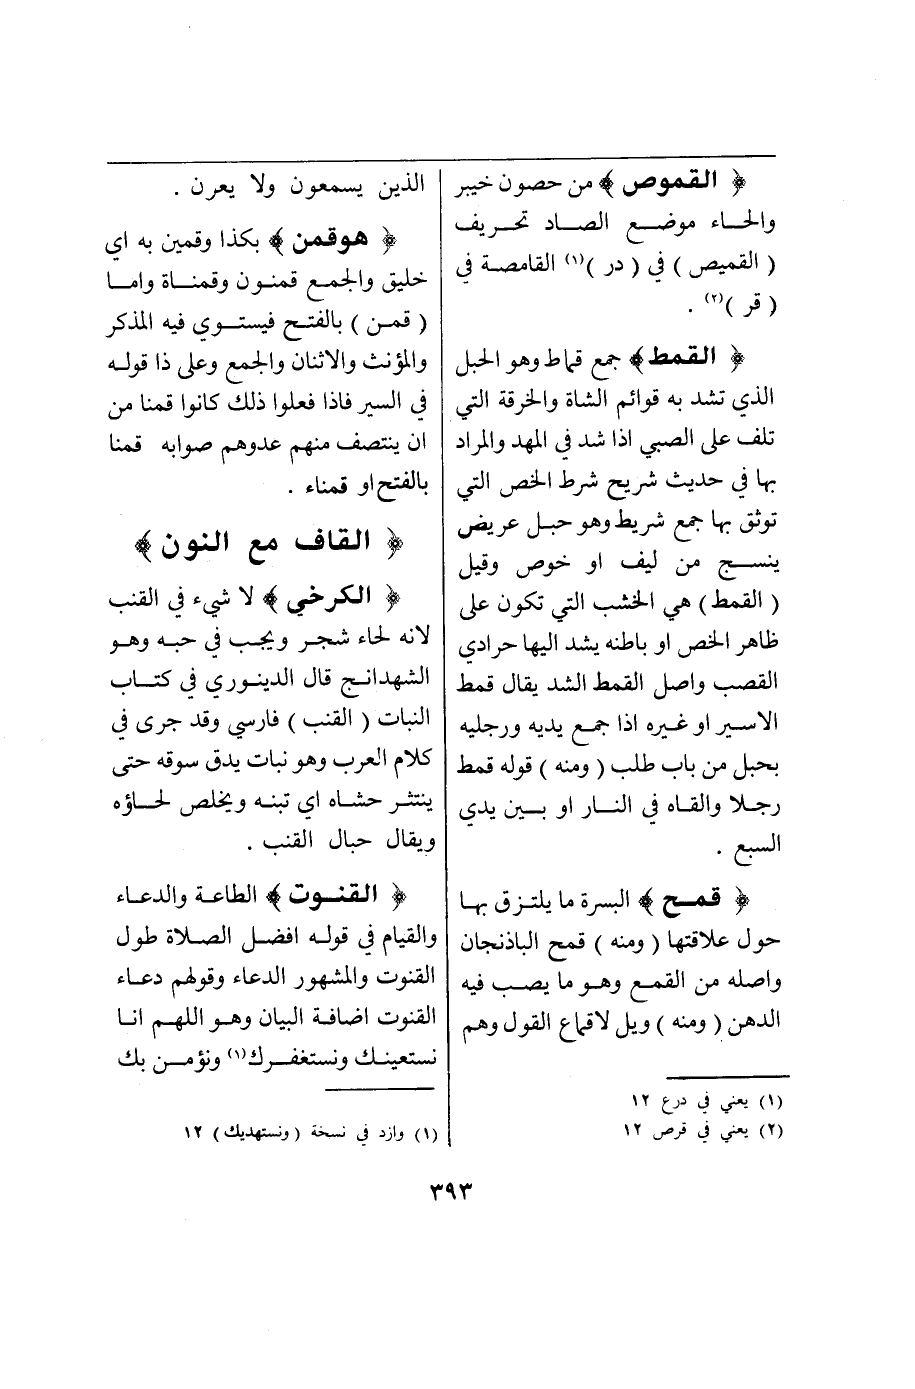 ﴿ القموص ﴾ من حصون خيبر
والحاء موضع الصاد تحريف
( القميص ) في ( در )(١) القامصة في
( قر )(٢) .
﴿ القمط ﴾ جمع قماط وهو الحبل
الذي تشد به قوائم الشاة والخرقة التي
تلف على الصبي اذا شد في المهد والمراد
بها في حديث شريح شرط الخص التي
توثق بها جمع شريط وهو حبل عريض
ينسج من ليف او خوص وقيل
( القمط ) هي الخشب التي تكون على
ظاهر الخص او باطنه يشد اليها حرادي
القصب واصل القمط الشد يقال قمط
الاسير او غيره اذا جمع يديه ورجليه
بحبل من باب طلب ( ومنه ) قوله قمط
رجلا والقاه في النار او بين يدي
السبع .
﴿ قمح ﴾ البسرة ما يلتزق بها
حول علاقتها ( ومنه ) قمح الباذنجان
واصله من القمع وهو ما يصب فيه
الدهن ( ومنه ) ويل لاقماع القول وهم
(١) يعني في درع ١٢
(٢) يعني في قرص ١٢
الذين يسمعون ولا يعرن .
﴿ هوقمن ﴾ بكذا وقمين به اي
خليق والجمع قمنون وقمناة واما
( قمن ) بالفتح فيستوي فيه المذكر
والمؤنث والاثنان والجمع وعلى ذا قوله
في السير فاذا فعلوا ذلك كانوا قمنا من
ان ينتصف منهم عدوهم صوابه قمنا
بالفتح او قمناء .
﴿ القاف مع النون ﴾
﴿ الكرخي ﴾ لا شيء في القنب
لانه لحاء شجر ويجب في حبه وهو
الشهدانج قال الدينوري في كتاب
النبات ( القنب ) فارسي وقد جرى في
كلام العرب وهو نبات يدق سوقه حتى
ينتثر حشاه اي تبنه ويخلص لحاؤه
ويقال حبال القنب .
﴿ القنوت ﴾ الطاعة والدعاء
والقيام في قوله افضل الصلاة طول
القنوت والمشهور الدعاء وقولهم دعاء
القنوت اضافة البيان وهو اللهم انا
نستعينك ونستغفرك(١) ونؤمن بك
(١) وازد في نسخة ( ونستهديك ) ١٢
٣٩٣